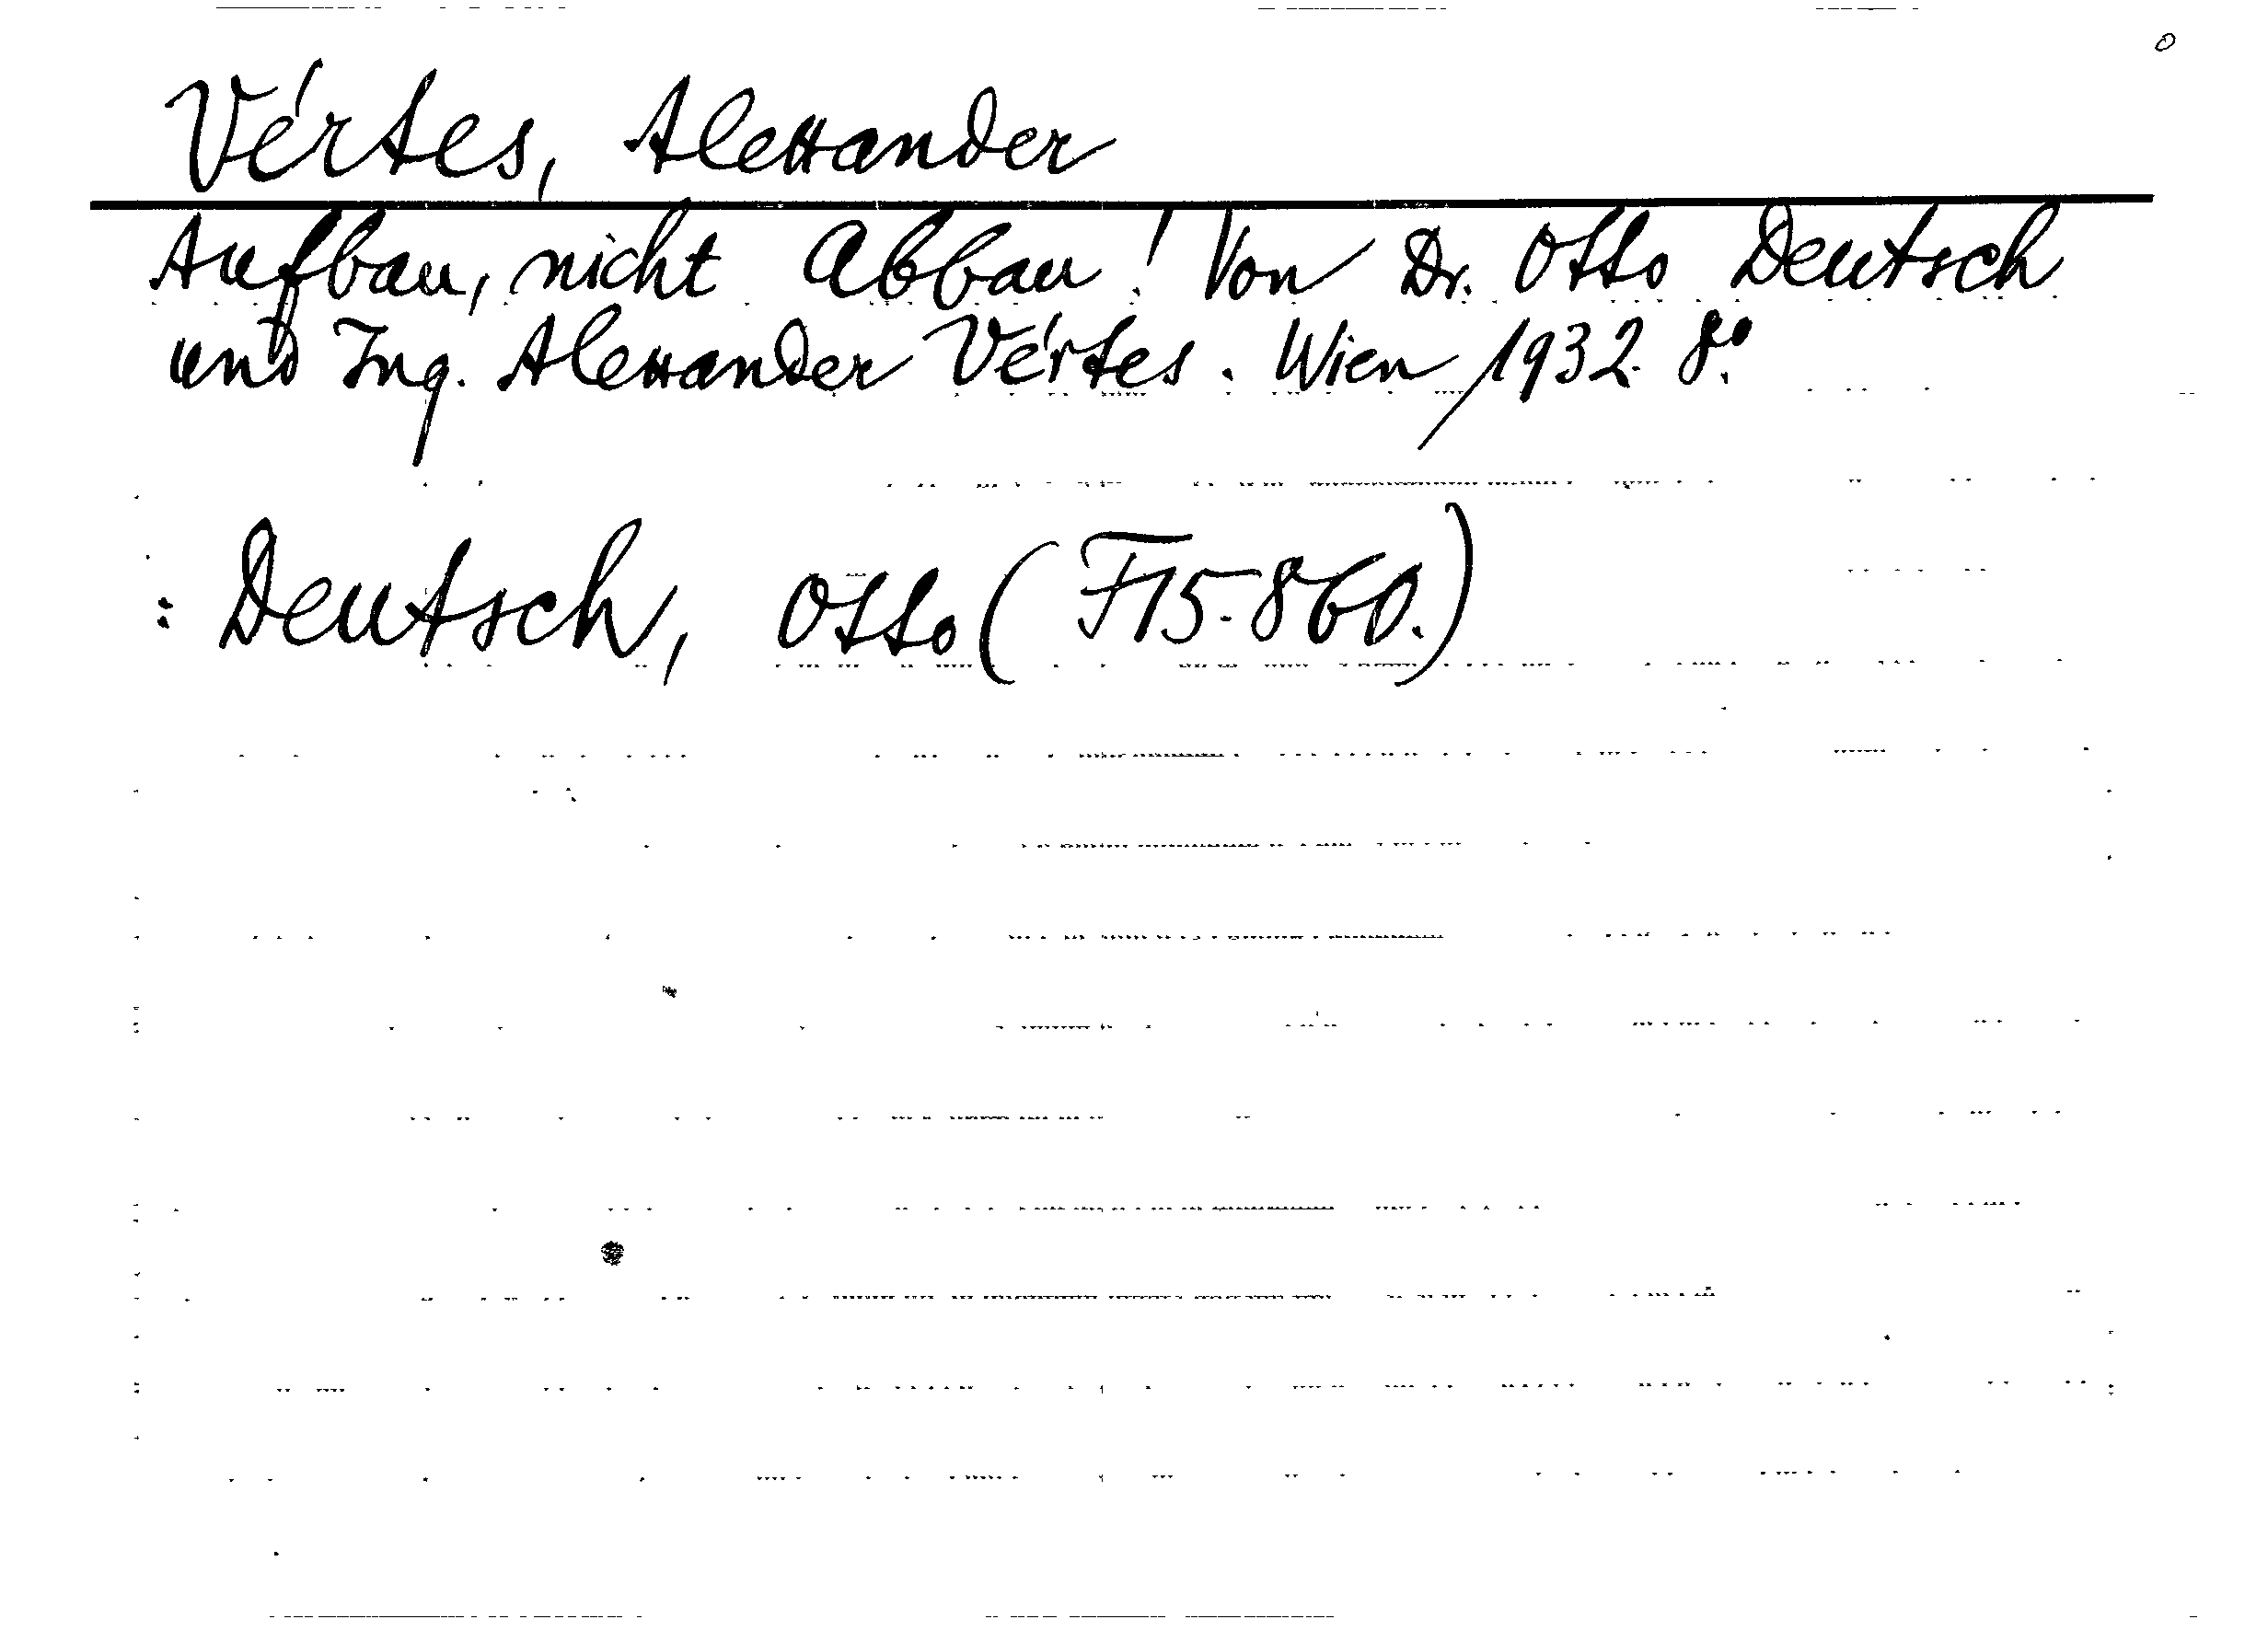 Vértes, Alexander
Aufbau, nicht Abbau! Von Dr. Otto Deutsch
und Ing. Alexander Vértes. Wien, 1932. 8°.
: Deutsch, Otto (F 15.860.)